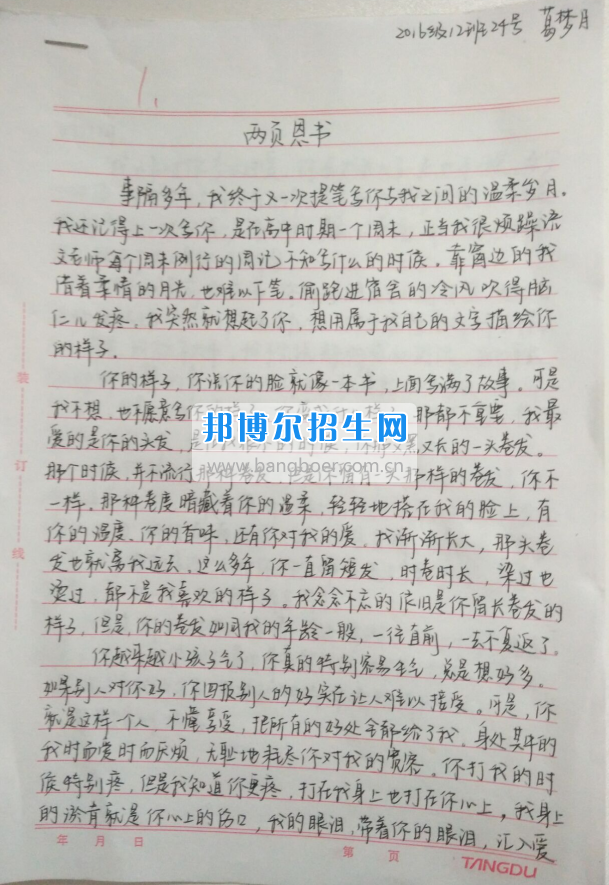 2016级12班24号 葛梦月
1.
两页恩书
事隔多年，我终于又一次提笔写你与我之间的温柔岁月。
我还记得上一次写你，是在高中时期一个周末，正当我很烦躁流
文老师每个周末例行的周记不知写什么的时候。靠窗边的我
借着柔情的月光，也难以下笔。偷跑进宿舍的冷风吹得脑
仁儿发疼，我突然就想起了你，想用属于我自己的文字描绘你
的样子。
你的样子，你说你的脸就像一本书，上面写满了故事。可是
我不想，也不愿意写你的样子，那都不重要，我最
爱的是你的头发，是在我很小的时候，你那又黑又长的一头卷发。
那个时候，并不流行那种卷发，但是不留有一头那样的卷发，你不
一样。那种卷度暗藏着你的温柔，轻轻地搭在我的脸上，有
你的温度、你的香味，还有你对我的爱。我渐渐长大，那头卷
发也就离我远去，这么多年，你一直留短发，时卷时长，染过也
烫过，都不是我喜欢的样子。我念念不忘的依旧是你留长卷发的
样子，但是，你的卷发如同我的年龄一般，一往直前，一去不复返了。
你越来越小孩子气了，你真的特别容易生气，总是想好多。
如果别人对你好，你回报别人的好实在让人难以接受。可是，你
就是这样一个人，不懂享受，把所有的好处全都给了我。身处其中的
我时而爱时而厌烦，无耻地耗尽你对我的宽容。你打我的时
候特别疼，但是我知道你更疼，打在我身上也打在你心上，我身上
的淤青就是你心上的伤口，我的眼泪，带着你的眼泪，汇入爱
装
订
线
年 月 日
第 页
TANGDU
邦博尔招生网
www.bangboer.com.cn